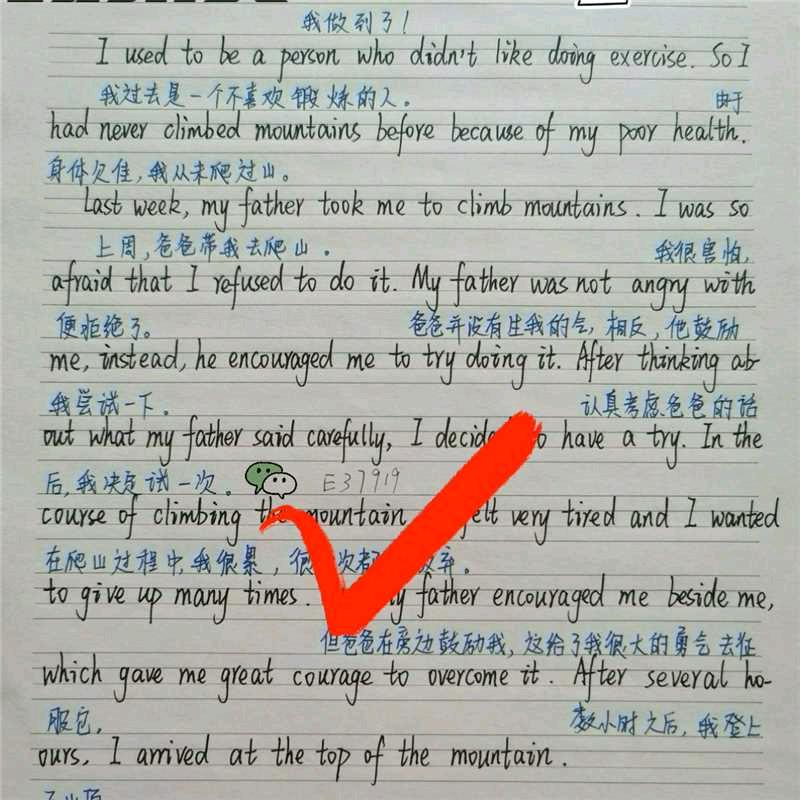 我做到了!
I used to be a person who didn't like doing exercise. So I
我过去是一个不喜欢锻炼的人。 由于
had never climbed mountains before because of my poor health.
身体欠佳,我从未爬过山。
Last week, my father took me to climb mountains. I was so
上周,爸爸带我去爬山。 我很害怕,
afraid that I refused to do it. My father was not angry with
便拒绝了。 爸爸并没有生我的气,相反,他鼓励
me, instead, he encouraged me to try doing it. After thinking ab-
我尝试一下。 认真考虑爸爸的话
out what my father said carefully, I to have a try. In the
后,我决定试一次。 E37919
course of climbing the mountain felt very tired and I wanted
在爬山过程中,我很累,很 次都 弃。
to give up many times. father encouraged me beside me,
但爸爸在旁边鼓励我,这给了我很大的勇气去征
which gave me great courage to overcome it. After several ho-
服它。 数小时之后,我登上
ours, I arrived at the top of the mountain.